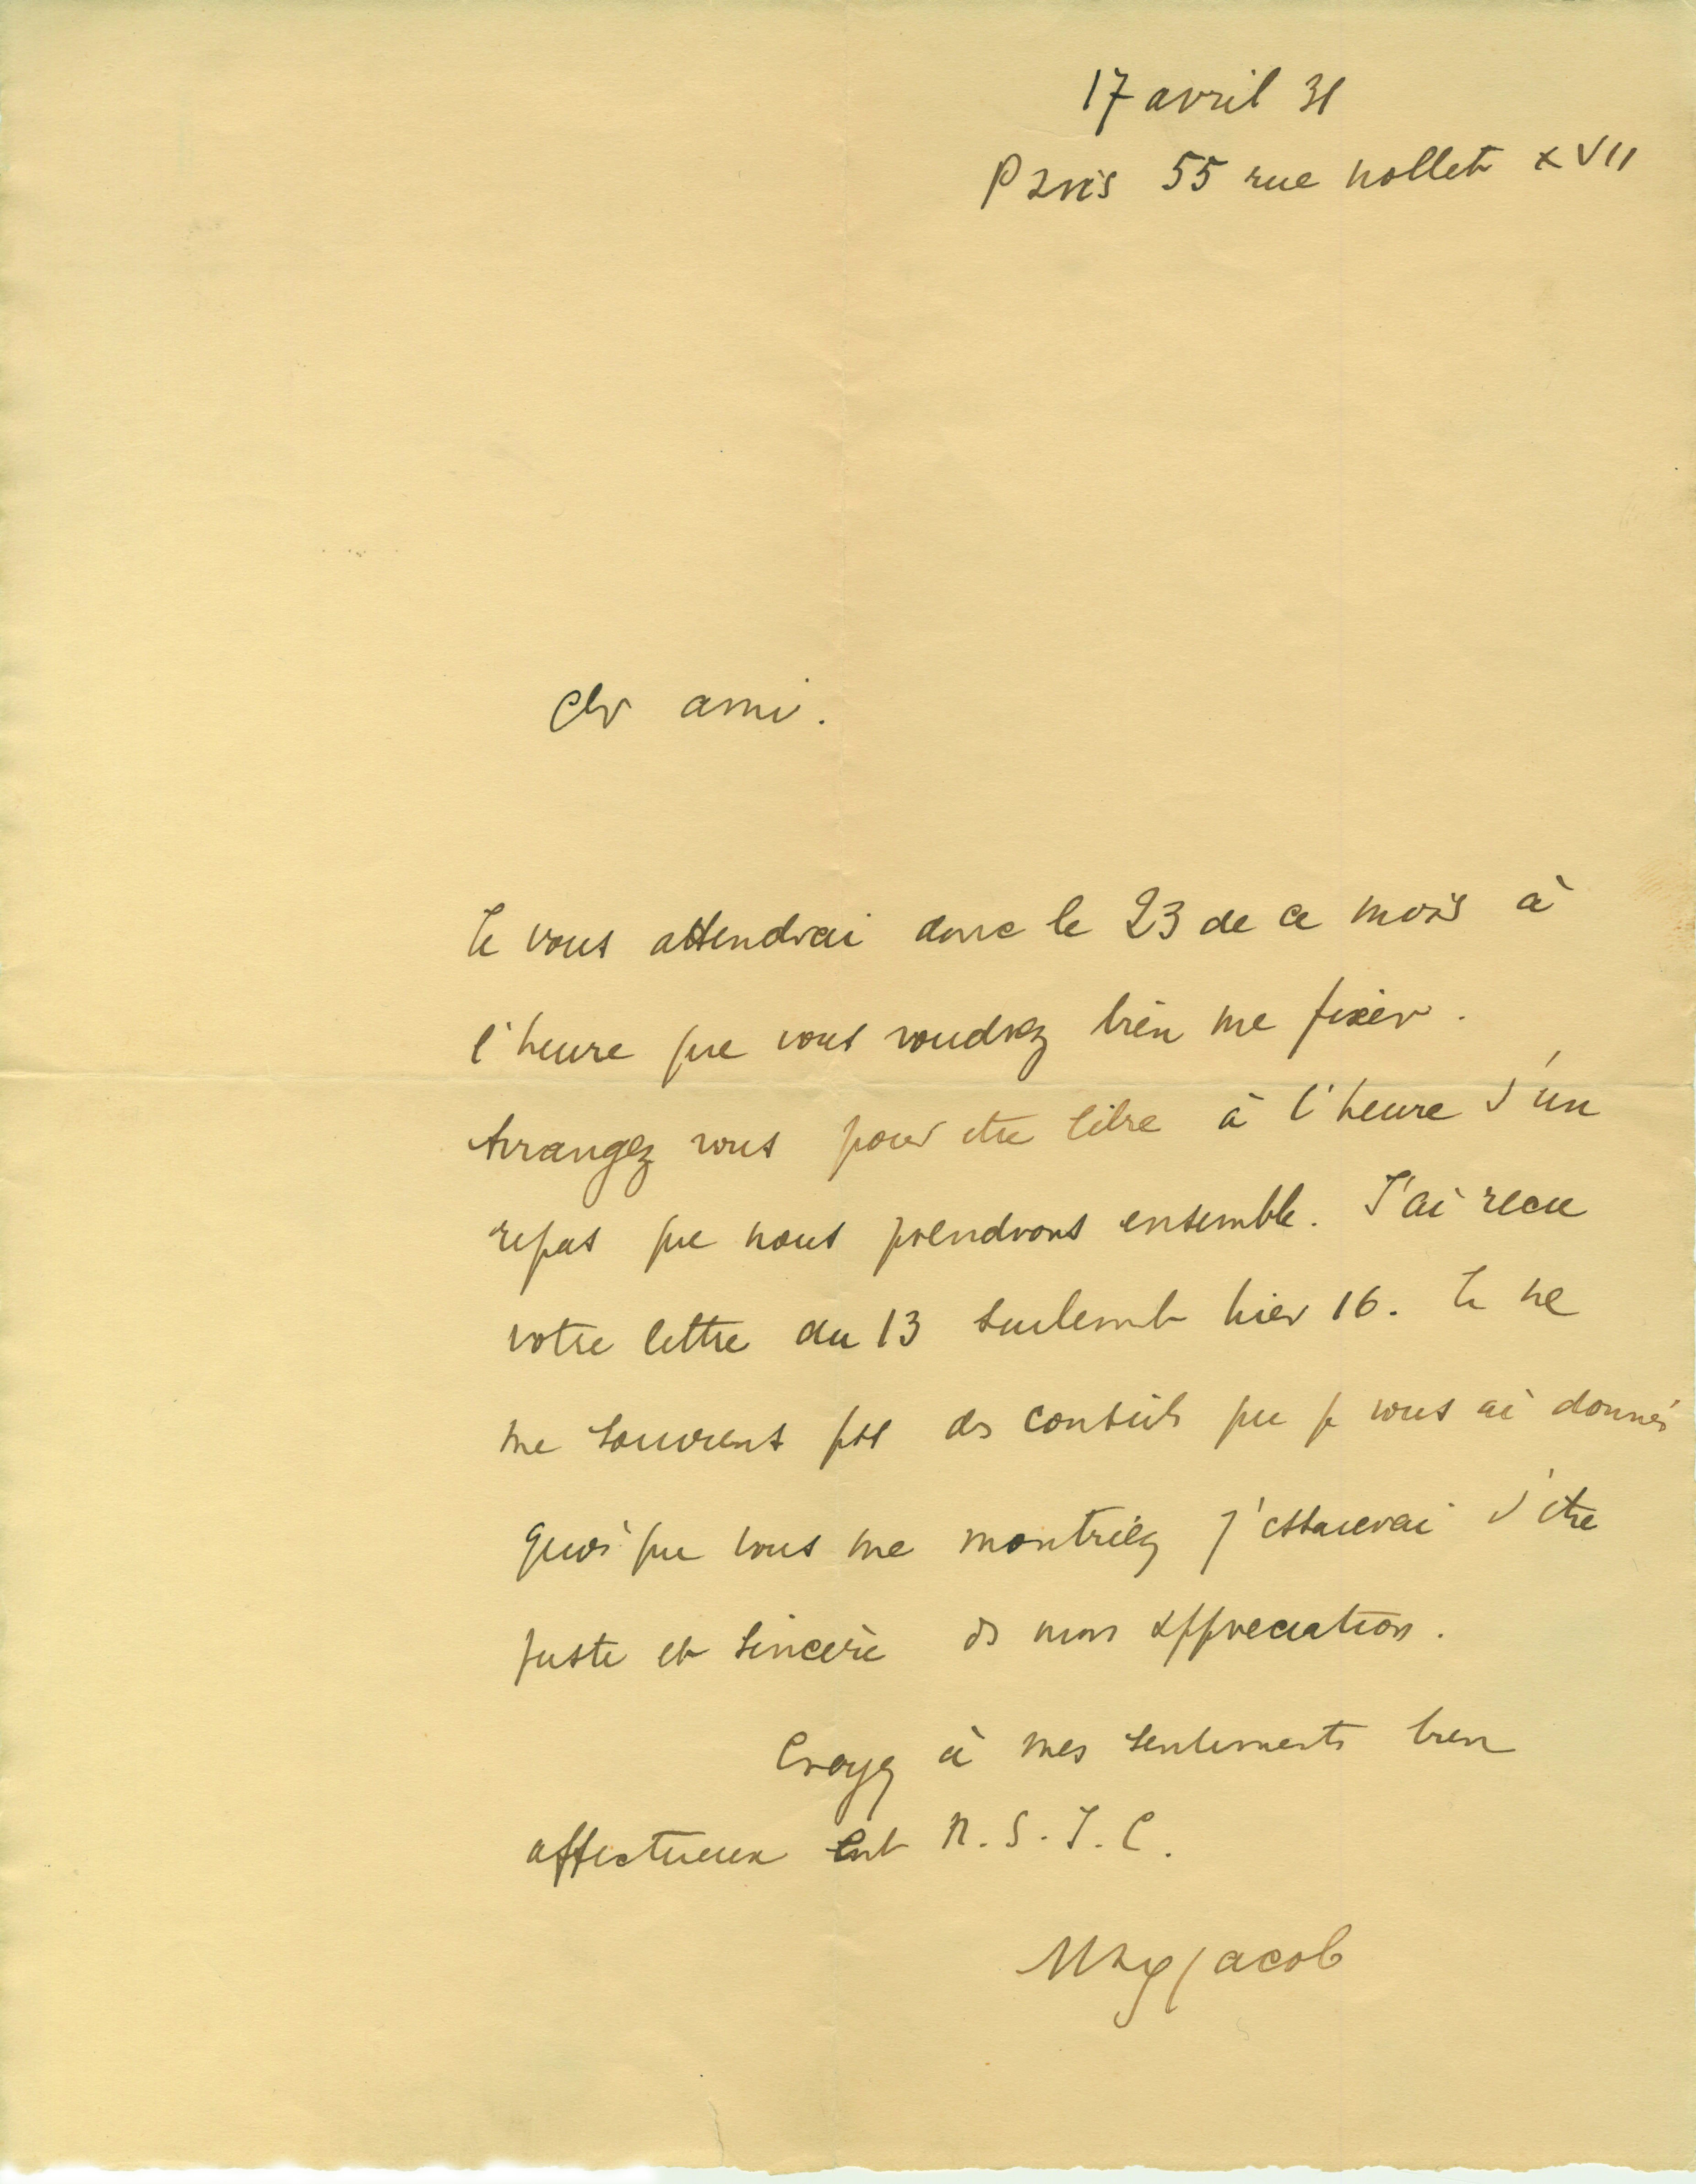 17 avril 31
Paris 55 rue nollet XVII
Cher ami.
Je vous attendrai donc le 23 de ce mois à
l'heure que vous voudrez bien me fixer.
Arrangez vous pour etre libre à l'heure d'un
repas que nous prendrons ensemble. J'ai recu
votre lettre du 13 seulement hier 16. Je ne
me souviens pas des conseils que je vous ai donnés
quoi que vous me montriez j'essaierai d'etre
juste et sincère ds mon appreciation.
Croyez à mes sentiments bien
affectueux en N.S.J.C.
Max Jacob